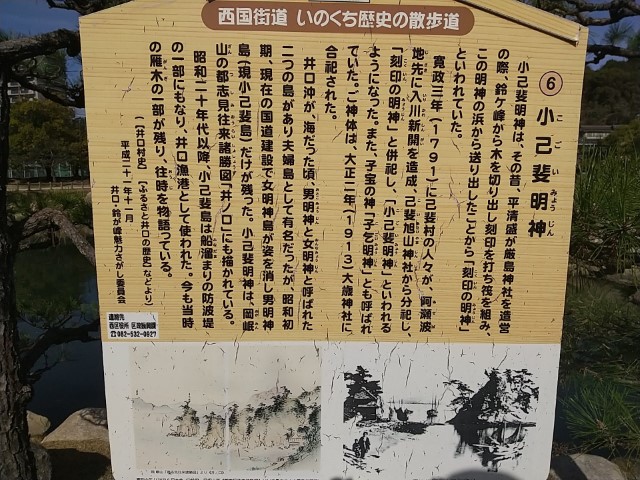 西国街道 いのくち歴史の散歩道
⑥ 小己斐明神
こごいみょうじん
小己斐明神は、その昔、平清盛が厳島神社を造営
の際、鈴ケ峰から木を切り出し刻印を打ち筏を組み、
この明神の浜から送り出したことから「刻印の明神」
といわれていた。
寛政三年(1791)に己斐村の人々が、「阿瀬波
地先に入川新開を造成、己斐旭山神社から分祀し、
「刻印の明神」と併祀し、「小己斐明神」といわれる
ようになった。また、子宝の神「子乞明神」とも呼ばれ
ていた。ご神体は、大正二年(1913)大歳神社に
合祀された。
井口沖が、海だった頃、男明神と女明神と呼ばれた
二つの島があり夫婦島として有名だったが、昭和初
期、現在の国道建設で女明神島が姿を消し男明神
島(現小己斐島)だけが残った。小己斐明神は、岡岷
山の都志見往来諸勝図「井ノ口」にも描かれている。
昭和二十年代以降、小己斐島は船溜まりの防波堤
の一部にもなり、井口漁港として使われた。今も当時
の雁木の一部が残り、往時を物語っている。
(「井口村史」「ふるさと井口の歴史」などより)
平成二十一年十一月
井口・鈴が峰魅力さがし委員会
連絡先
西区役所 区政振興課
☎082-532-0927